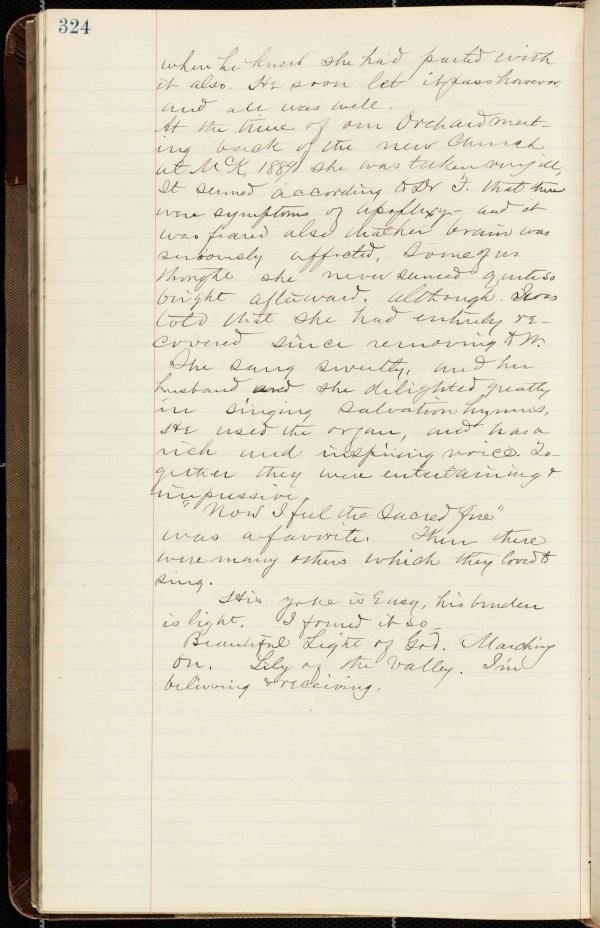 324
when he knew she had parted with
it also. He soon let it pass however,
and all was well.
At the time of our Orchard meet-
ing back of the new Church
at McK, 1889 she was taken very ill,
It seemed according to Dr F. that there
were symptoms of apoplexy - and it
was feared also that her brain was
seriously affected, Some of us
thought she never seemed quite so
bright afterward. although I was
told that she had entirely re-
covered since removing to W.
She sang sweetly, and her
husband and she delighted greatly
in singing Salvation hymns,
He used the organ, and has a
rich and inspiring voice. To-
gether they were entertaining &
impressive.
"Now I feel the Sacred fire"
was a favorite. Then there
were many others which they loved to
sing.
His yoke is Easy, his burden
is light. I found it so
Beautiful Light of God. Marching
on. Lily of the Valley. I'm
believing & receiving.